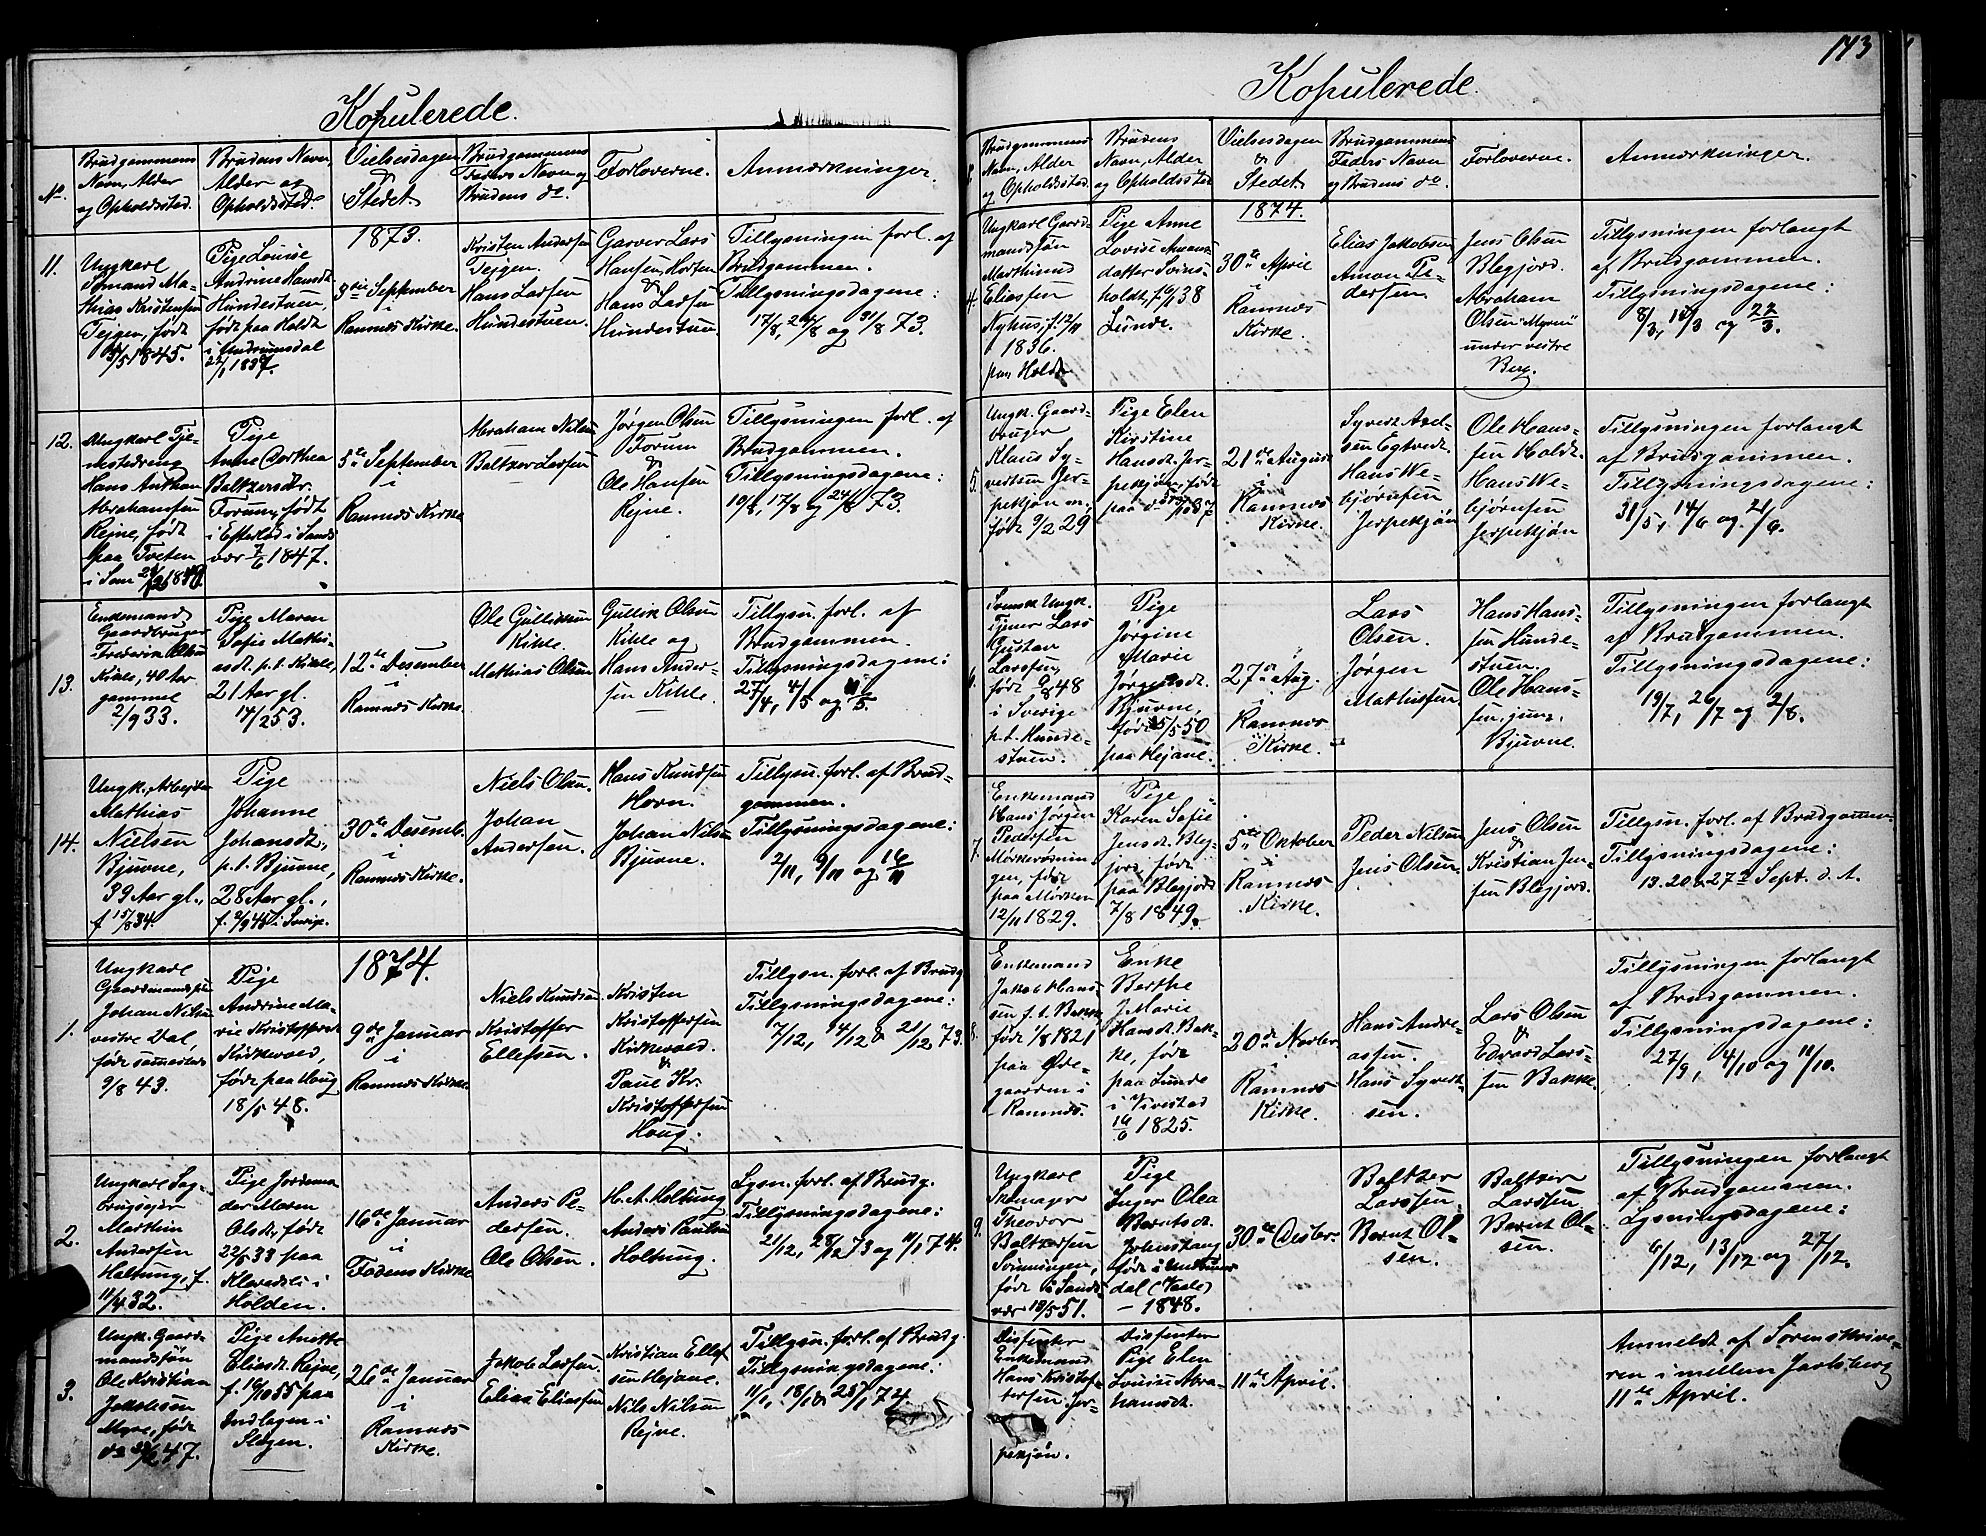 143
Kopulerede.
No.
Brudgommens
Navn, Alder
og Opholdssted.
Brudens Navn,
Alder og
Opholdssted.
Vielsesdagen
&
Stedet
Brudgommens
Faders Navn og
Brudens do.
Forloverne.
Anmærkninger.
11.
Ungkarl
Mathias Kristensen
Tejgen, født
1845.
Pige Louise
Andrine Hansdt.
Hundestuen,
født paa Holdt
i Undrumsdal
22/1 1837.
1873.
3die September
Ramnæs Kirke.
Kristen Andersen
Tejgen.
Hans Larsen
Hundestuen.
Garver Lars
Hansen, Horten
&
Hans Larsen
Hundestuen
Tillysningen forl. af
Brudgommen.
Tillysningsdagene:
17/8, 24/8 og 31/8 73.
12.
Ungkarl Tje-
nestedreng
Hans Anthon
Abrahamsen
Rejne, født
paa Tveten
i Sem
Pige
Anne Dorthea
Baltzersdr.
Forum, født
i Efterløb i Sands
vær 7/6 1847.
5te September
i
Ramnæs Kirke
Abraham Nilsen
Baltzer Larsen
Jørgen Olsen
Forum
&
Ole Hansen
Rejne.
Tillysningen forl. af
Brudgommen.
Tillysningsdagene:
10/8, 17/8 og 24/8 73.
13.
Enkemand
Gaardbruger
Frederik Olsen
Kihle, 40 Aar
gammel
2/9 33.
Pige Maren
Sofie Mathi-
asdt. p.t. Kihle,
21 Aar gl.
14/2 53.
12te Desember
i
Ramnæs Kirke.
Ole Gulliksen
Kihle.
Mathias Olsen
Gullik Olsen
Kihle og
Hans Ander-
sen Kihle.
Tillysn. forl. af
Brudgommen.
Tillysningsdagene:
27/4, 4/5 og 11/5.
14.
Ungk. Arbejder
Mathias
Nielsen
Bjuvne,
39 Aar gl.,
f. 15/8 34.
Pige
Johanne
Johansdt.,
p.t. Bjuvne,
28 Aar gl.,
f. 2/9 45 i Sverige.
30te Desemb.
i
Ramnæs Kirke.
Niels Olsen.
Johan
Andersen.
Hans Knudsen
Horn.
Johan Nilsen
Bjuvne.
Tillysn. forl. af Brud-
gommen.
Tillysningsdagene:
2/11, 9/11 og 16/11
1.
Ungkarl
Gaardmandssøn
Johan Nilsen
vestre Dal,
født sammesteds
9/8 43.
Pige
Andrine Ma-
rie Kristoffersdt.
Kirkevold,
født paa Houg
18/5 48.
1874.
9de Januar
i
Ramnæs Kirke.
Niels Knudsen.
Kristoffer
Ellefsen.
Kristen
Kristoffersen
Kirkevold.
&
Paul Kr.
Kristoffersen
Houg.
Tillysn. forl. af Brudg.
Tillysningsdagene:
7/12, 14/12 & 21/12 73.
2.
Ungkarl Sag-
brugsejer
Marthin
Andersen
Holtung, f.
11/4 32.
Pige Jordemo
der Maren
Olsdt., født
22/6 33 paa
i
Holden.
16de Januar
i
Fodens Kirke
Anders Pe-
dersen.
Ole Olsen.
H. A. Holtung
Anders Paulsen
Holtung.
Lysn. forl. af Brudg.
Tillysningsdagene:
21/12, 28/12 73 og 11/1 74.
3.
Ungk. Gaard-
mandssøn
Ole Kristian
Jakobsen
Myre, født
47.
Pige Anette
Eliasdt. Rejne,
f. 16/10 55 paa
Indlagen i
Slagen.
26de Januar
i
Ramnæs
Kirke.
Jakob Larsen.
Elias Eliassen
Kristian Ellef
sen Hejane.
Nils Nilsen
Rejne.
Tillysn. forl. af Brudg.
Tillysningsdagene:
11/1, 18/1 & 25/1 74.
Kopulerede.
Brudgommens
Navn, Alder
og Opholdssted.
Brudens
Navn, Alder
og Opholdssted
Vielsesdagen
&
Stedet
Brudgommens
Faders Navn
og Brudens do.
Forloverne.
Anmærkninger.
4.
Ungkarl Gaard-
mandssøn
Marthinus
Eliassen
Nyhus, f. 12/11
1836.
paa Holdt
Pige Anne
Lovise Amons
datter Svins-
holdt, f. 38
Lunde.
1874.
30te April
i
Ramnæs
Kirke.
Elias Jakobsen
Amon Pe-
dersen.
Jens Olsen
Blegjord.
Abraham
Olsen "Myren"
under vestre
Berg.
Tillysningen forlangt
af Brudgommen.
Tillysningsdagene:
8/3, 15/3 og 22/3.
5.
Ungk. Gaard-
bruger
Klaus Sy-
vertsen Jer-
pekjøn
født 9/2 29
Pige Elen
Kirstine
Hansdt. Jer-
pekjøn, født
paa
21de August
i
Ramnæs
Kirke.
Syvert Axel-
sen Egtvedt
Hans We-
bjørnsen
Jerpekjøn
Ole Hans-
sen Holdt.
Hans We-
bjørnsen
Jerpekjøn
Tillysningen forlangt
af Brudgommen.
Tillysningsdagene:
31/5, 14/6 og 21/6.
6.
Svensk Ungk.
Tjener Lars
Gustav
Larssen,
født 48
i Sverige
p.t. Hunde-
stuen.
Pige
Jørgine
Marie
Jørgensdt.
Bjuvne,
født 15/5 50
paa Hejane.
27de Aug.
i
Ramnæs
Kirke.
Lars
Olsen.
Jørgen
Mathissen.
Hans Hans-
sen Hunde-
stuen.
Ole Hans-
sen, junr.
Bjuvne.
Tillysningen forlangt
af Brudgommen.
Tillysningsdagene:
19/7, 26/7 og 2/8.
7.
Enkemand
Hans Jørgen
Pedersen
gen, født
paa Mørken
12/11 1829.
Pige
Karen Sofie
Jensdt. Bleg-
jord, født
paa Blegjord
7/8 1849.
5te Oktober
i
Ramnæs
Kirke.
Peder Nilsen
Jens Olsen.
Jens Olsen
&
Kristian Jen-
sen Blegjord.
Tillysn. forl. af Brudgommen.
Tillysningsdagene:
13. 20 & 27de Sept. d. A.
8.
Enkemand
Jakob Hans-
sen p.t. Bakke,
født 1/8 1821
paa Øde-
gaarden i
Ramnæs.
Enke
Berthe
Marie
Hansdt. Bak-
ke, født
paa Lunde
i Vivestad
16/6 1825.
20de Novbr.
i
Ramnæs
Kirke.
Hans Andre-
assen.
Hans Syvert-
sen.
Lars Olsen
&
Edvard Lars-
sen Bakke.
Tillysningen forlangt
af Brudgommen.
Tillysningsdagene:
27/9, 4/10 og 11/10.
9.
Ungkarl
Skomager
Theodor
Baltzersen
født i Sands-
vær 10/5 51.
Pige
Inger Olea
Berntsdt.
født i Undrums
dal (Vaale)
– 1848.
30te Desbr.
Baltzer
Larssen.
Bernt Ol-
sen.
Baltzer
Larssen.
Bernt Ol-
sen.
Tillysningen forlangt
af Brudgommen.
Lysningsdagene:
6/12, 13/12 og 27/12.
Dissenter
Enkemand
Hans Kristof-
fersen Jer-
pekjøn.
Dissenter
Pige Elen
Louise Abra-
hamsdt.
11te April.
Anmeldt af Sorenskrive-
ren i mellem Jarlsberg
11te April.